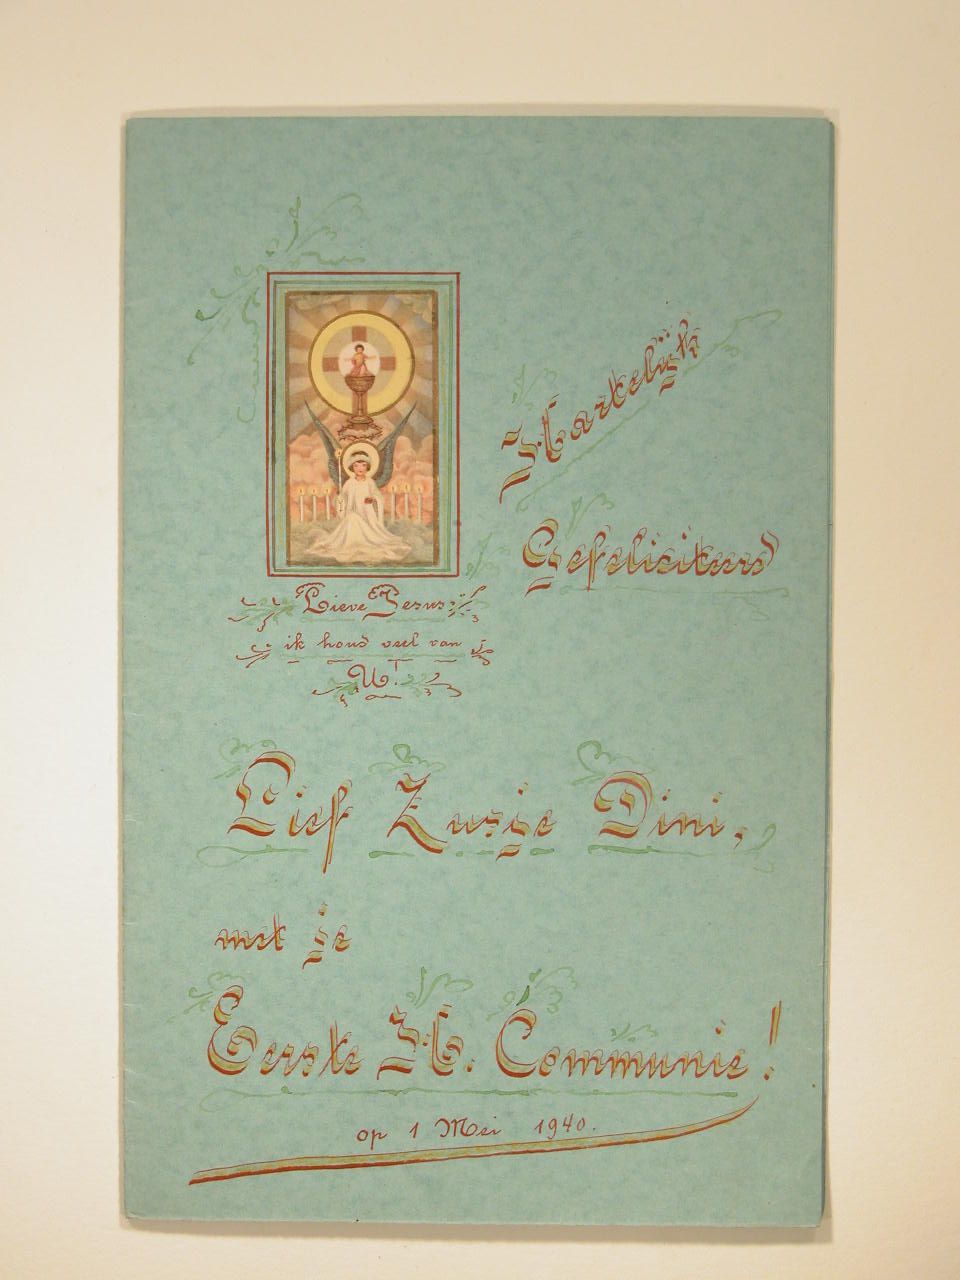 Hartelijk
Gefeliciteerd
Lieve Jesus
ik houd veel van
U!
Lief Zusje Dini,
met je
Eerste H. Communie!
op 1 Mei 1940.